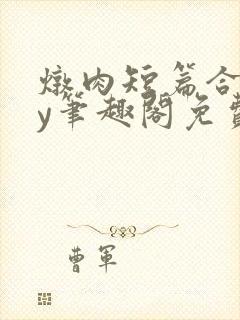 燉肉短篇合
y笔趣阁免费
曹军